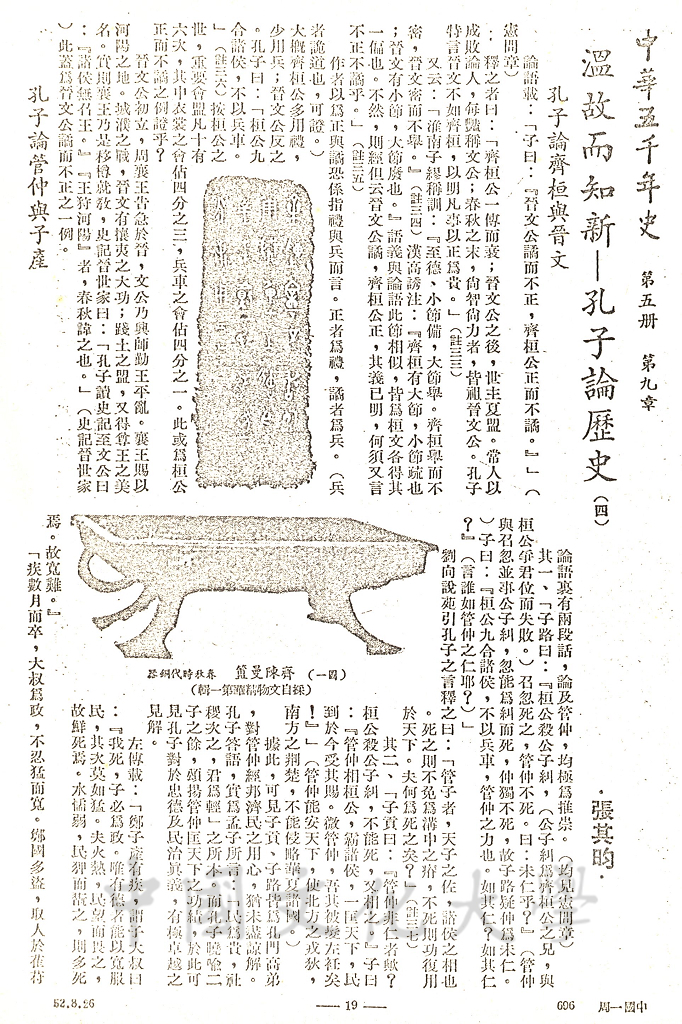 中華五千年史　第五册　第九章
溫故而知新—孔子論歷史(四)
·張其昀·
孔子論齊桓與晉文
論語載：「子曰：『晉文公譎而不正，齊桓公正而不譎。』」（
憲問章）
釋之者曰：「齊桓公一傳而衰；晉文公之後，世主夏盟。常人以
成敗論人，每豔稱文公；春秋之末，尙智尙力者，皆祖晉文公。孔子
特言晉文不如齊桓，以明凡事以正爲貴。」（註三三）
又云：「淮南子繆稱訓：『至德、小節備，大節舉。齊桓舉而不
密，晉文密而不舉。』（註三四）漢高誘注：『齊桓有大節，小節疏也
；晉文有小節，大節廢也。』語義與論語此節相似，皆爲桓文各得其
一偏也。不然，則經但云晉文公譎，齊桓公正，其義已明，何須又言
不正不譎乎。」（註三五）
作者以爲正與譎恐係指禮與兵而言。正者爲禮，譎者爲兵。（兵
者詭道也，可證。）
大概齊桓公多用禮，
少用兵；晉文公反之
。孔子曰：「桓公九
合諸侯，不以兵車。
」（註三六）按桓公之
世，重要會盟凡十有
六次，其中衣裳之會佔四分之三，兵車之會佔四分之一。此或爲桓公
正而不譎之例證乎？
晉文公初立，周襄王告急於晉，文公乃興師勤王平亂。襄王賜以
河陽之地。城濮之戰，晉文有攘夷之大功；踐土之盟，又得尊王之美
名。實則襄王乃是移樽就敎，史記晉世家曰：「孔子讀史記至文公曰
：『諸侯無召王。』『王狩河陽』者，春秋諱之也。」（史記晉世家
）此蓋爲晉文公譎而不正之一例。
孔子論管仲與子產
論語裏有兩段話，論及管仲，均極爲推崇。（均見憲問章）
其一、「子路曰：『桓公殺公子糾，（公子糾爲齊桓公之兄，與
桓公爭君位而失敗。）召忽死之，管仲不死。曰：未仁乎？』（管仲
與召忽並事公子糾，忽能爲糾而死，仲獨不死，故子路疑仲爲未仁。
）子曰：『桓公九合諸侯，不以兵車，管仲之力也。如其仁？如其仁
？』（言誰如管仲之仁耶？）」
劉向說苑引孔子之言釋之曰：「管子者，天子之佐，諸侯之相也
。死之則不免爲溝中之瘠，不死則功復用
於天下。夫何爲死之矣？」（註三七）
其二、「子貢曰：『管仲非仁者歟？
桓公殺公子糾，不能死，又相之。』子曰
：『管仲相桓公，霸諸侯，一匡天下，民
到於今受其賜。微管仲，吾其被髮左衽矣
！』」（管仲能安天下，使北方之戎狄，
南方之荆楚，不能侵略華夏諸國。）
據此，可見子貢、子路皆爲孔門高弟
，對管仲經邦濟民之用心，猶未盡諒解。
孔子答語，實爲孟子所言「民爲貴，社
稷次之，君爲輕」之所本。而孔子曉喩二
子之餘，頌揚管仲匡天下之功績，於此可
見孔子對於忠德及民治眞義，有極卓越之
見解。
左傳載：「鄭子產有疾，謂子大叔曰
：『我死，子必爲政。唯有德者能以寬服
民，其次莫如猛。夫火熱，民望而畏之，
故鮮死焉。水懦弱，民狎而翫之，則多死
焉。故寬難。』
「疾數月而卒，大叔爲政，不忍猛而寬。鄭國多盜，取人於萑苻
（圖一）齊陳曼簠　春秋時代銅器
（採自文物精華第一輯）
中國文化大學
52.8.26
— 19 —
696　中國一周